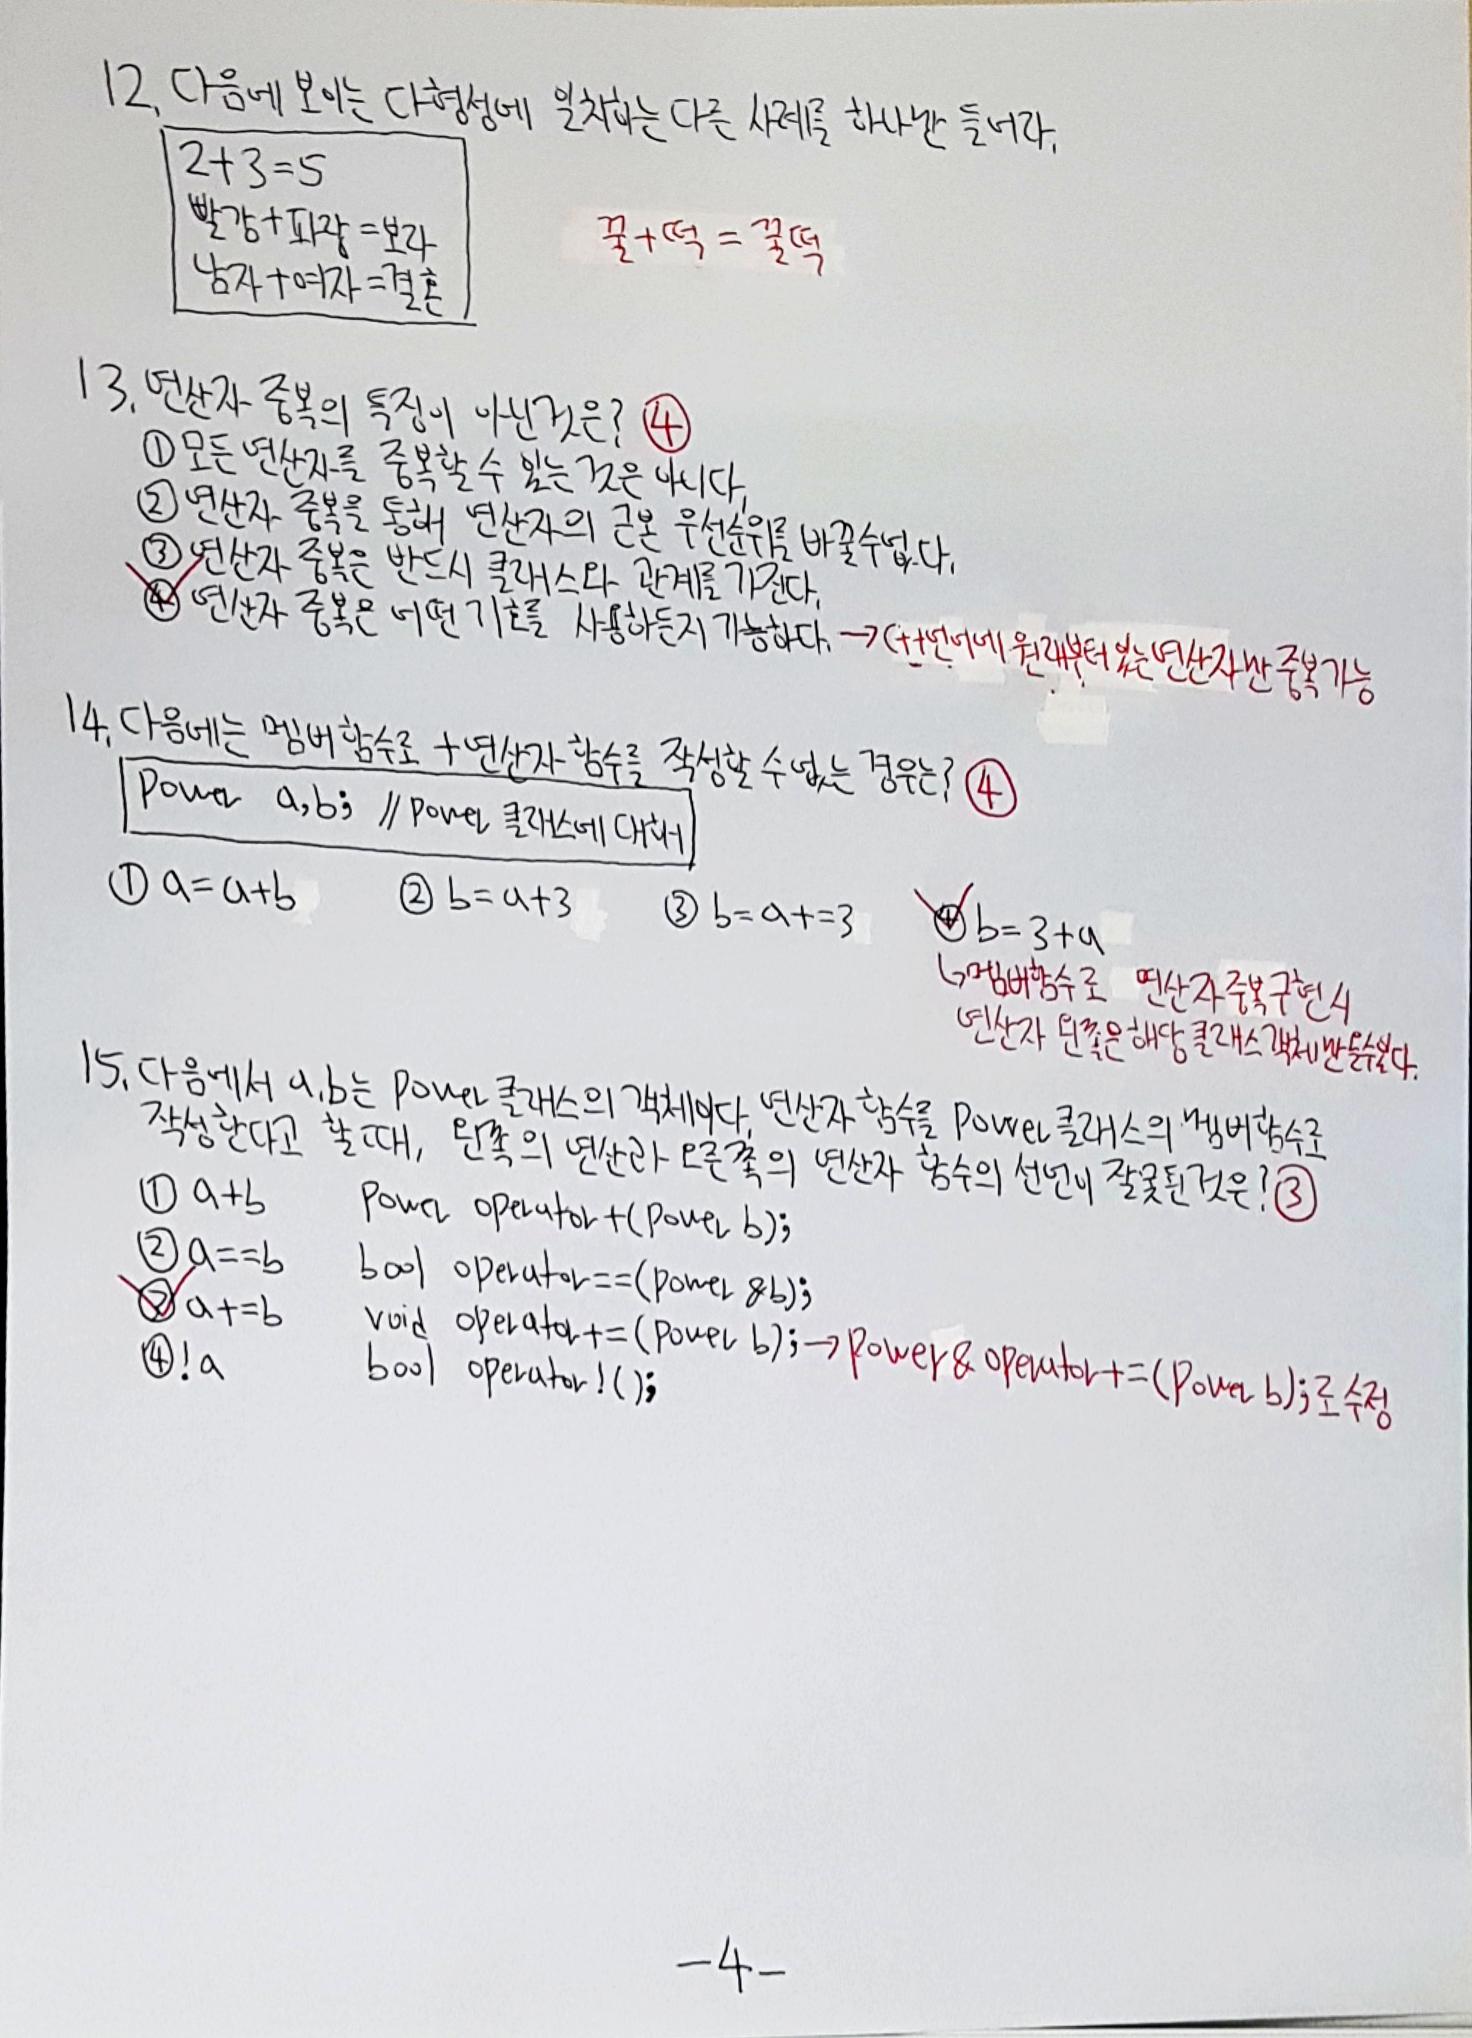 12. 다음에 보이는 다형성에 일치하는 다른 사례를 하나만 들어라.
2+3=5
빨강+파랑=보라
남자+여자=결혼
꿀+떡=꿀떡
13. 연산자 중복의 특징이 아닌것은? ④
① 모든 연산자를 중복할 수 있는 것은 아니다.
② 연산자 중복을 통해 연산자의 근본 우선순위를 바꿀수없다.
③ 연산자 중복은 반드시 클래스와 관계를 가진다.
④ 연산자 중복은 어떤 기호를 사용하든지 가능하다. → C++언어에 원래부터 있는 연산자만 중복가능
14. 다음에는 멤버함수로 +연산자 함수를 작성할 수 없는 경우는? ④
Power a,b; // Power 클래스에 대해
① a=a+b ② b=a+3 ③ b=a+=3 ④ b=3+a
↳멤버함수로 연산자중복구현시
연산자 왼쪽은 해당클래스객체만 올수있다.
15. 다음에서 a,b는 Power 클래스의 객체이다. 연산자 함수를 Power 클래스의 멤버함수로
작성한다고 할 때, 왼쪽의 연산과 오른쪽의 연산자 함수의 선언이 잘못된것은? ③
① a+b Power operator+(Power b);
② a==b bool operator==(Power &b);
③ a+=b void operator+=(Power b); → Power& operator+=(Power b);로 수정
④ !a bool operator!();
-4-